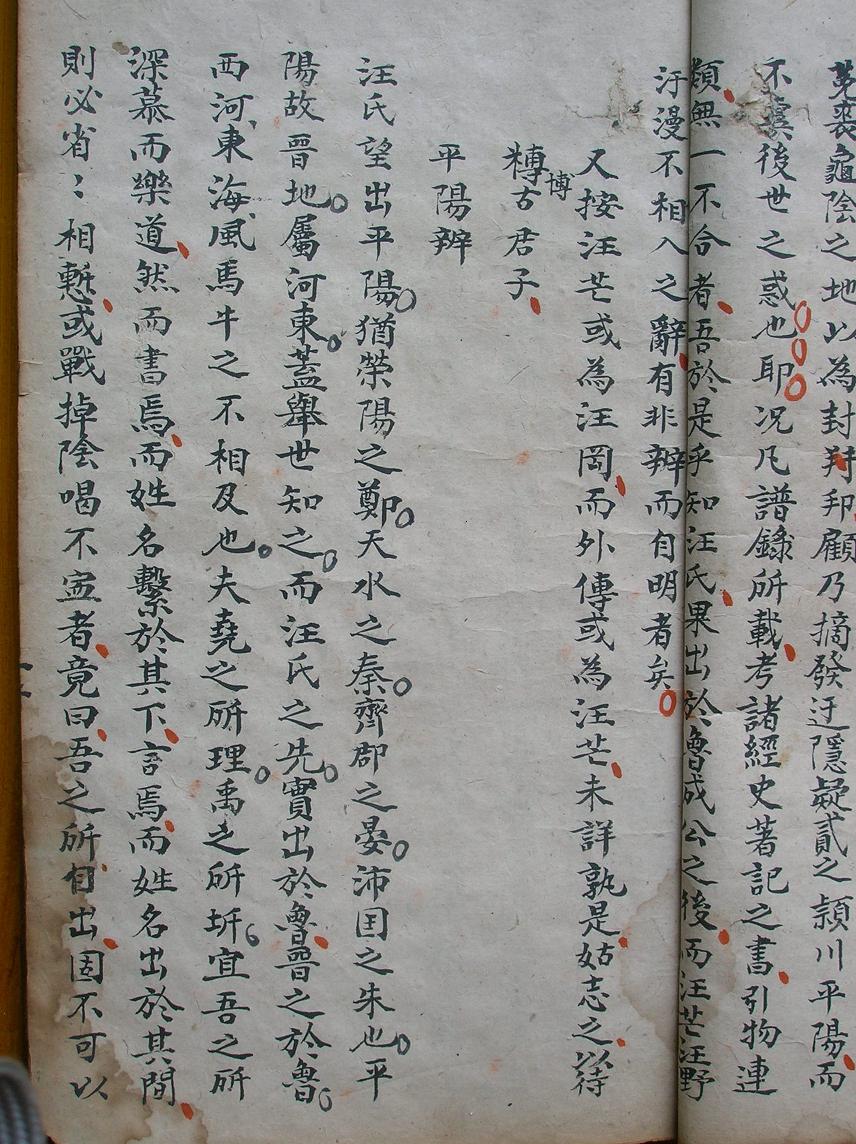 菟裘龜陰之地以為封邦顧乃摘發迂隱疑貳之潁川平陽而
不虞後世之惑也耶况凡譜錄所載考諸經史著記之書引物連
類無一不合者吾於是乎知汪氏果出於魯成公之後而汪芒汪野
汙漫不相入之辭有非辨而自明者矣
又按汪芒或為汪罔而外傳或為汪芒未詳孰是姑志之以待
博古君子
平陽辨
汪氏望出平陽猶荣陽之鄭天水之秦齊郡之晏沛国之朱也平
陽故晉地屬河東蓋舉世知之而汪氏之先實出於魯晉之於魯
西河東海風馬牛之不相及也夫堯之所理禹之所圻宜吾之所
深慕而樂道然而書焉而姓名繫於其下言焉而姓名出於其間
則必省：相慙或戰掉陰喝不寍者竟曰吾之所自出固不可以